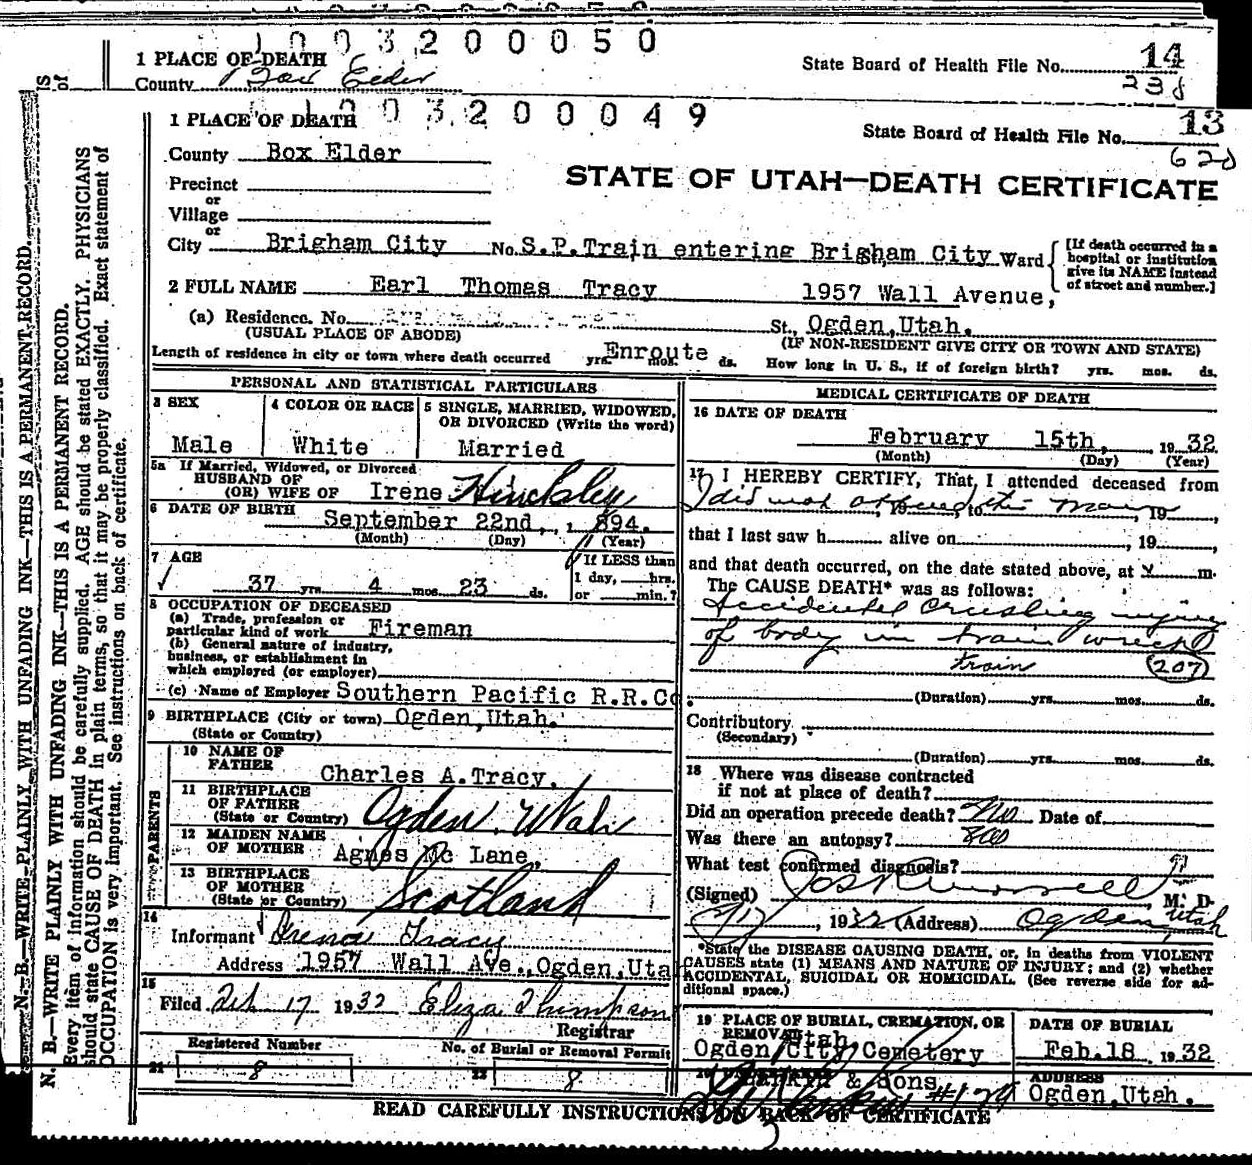 1 0 0 3 2 0 0 0 5 0
1 PLACE OF DEATH
State Board of Health File No. 14
County Box Elder
238
1 0 0 3 2 0 0 0 4 9
1 PLACE OF DEATH
State Board of Health File No. 13
County Box Elder
620
STATE OF UTAH—DEATH CERTIFICATE
Precinct
or
Village
or
City Brigham City No. S.P.Train entering Brigham City Ward
[If death occurred in a
hospital or institution
give its NAME instead
of street and number.]
2 FULL NAME Earl Thomas Tracy
1957 Wall Avenue,
(a) Residence. No. St., Ogden,Utah.
(USUAL PLACE OF ABODE)
(IF NON-RESIDENT GIVE CITY OR TOWN AND STATE)
Length of residence in city or town where death occurred yrs. Enroute mos. ds. How long in U. S., if of foreign birth? yrs. mos. ds.
PERSONAL AND STATISTICAL PARTICULARS
3 SEX
Male
4 COLOR OR RACE
White
5 SINGLE, MARRIED, WIDOWED,
OR DIVORCED (Write the word)
Married
5a If Married, Widowed, or Divorced
HUSBAND OF
(OR) WIFE OF Irene Hinckley
6 DATE OF BIRTH
September 22nd, 1894.
(Month) (Day) (Year)
7 AGE
37 yrs. 4 mos. 23 ds.
If LESS than
1 day, hrs.
or min.?
8 OCCUPATION OF DECEASED
(a) Trade, profession or
particular kind of work Fireman
(b) General nature of industry,
business, or establishment in
which employed (or employer)
(c) Name of Employer Southern Pacific R.R.Co.
9 BIRTHPLACE (City or town) Ogden,Utah.
(State or Country)
PARENTS
10 NAME OF
FATHER
Charles A.Tracy.
11 BIRTHPLACE
OF FATHER
(State or Country) Ogden, Utah
12 MAIDEN NAME
OF MOTHER Agnes Mc Lane,
13 BIRTHPLACE
OF MOTHER
(State or Country) Scotland
14
Informant Irene Tracy
Address 1957 Wall Ave.,Ogden,Utah
15
Filed Feb 17 1932 Eliza Thompson
Registrar
Registered Number
21 8
No. of Burial or Removal Permit
22 8
MEDICAL CERTIFICATE OF DEATH
16 DATE OF DEATH
February 15th, 1932
(Month) (Day) (Year)
17 I HEREBY CERTIFY, That I attended deceased from
I did not attend this man, 19 , to , 19
that I last saw h alive on , 19
and that death occurred, on the date stated above, at m.
The CAUSE DEATH* was as follows:
Accidental crushing injury
of body in train wreck
train (207)
(Duration) yrs. mos. ds.
Contributory
(Secondary)
(Duration) yrs. mos. ds.
18 Where was disease contracted
if not at place of death?
Did an operation precede death? No Date of
Was there an autopsy? no
What test confirmed diagnosis?
(Signed) M. D.
2/17, 1932 (Address) Ogden, Utah
*State the DISEASE CAUSING DEATH, or, in deaths from VIOLENT
CAUSES state (1) MEANS AND NATURE OF INJURY; and (2) whether
ACCIDENTAL, SUICIDAL OR HOMICIDAL. (See reverse side for ad-
ditional space.)
19 PLACE OF BURIAL, CREMATION, OR
REMOVAL Utah.
Ogden City Cemetery
DATE OF BURIAL
Feb.18 1932
20 & Sons #129
ADDRESS
Ogden,Utah.
READ CAREFULLY INSTRUCTIONS ON BACK OF CERTIFICATE
N. B.—WRITE PLAINLY WITH UNFADING INK—THIS IS A PERMANENT RECORD.
N. B.—WRITE PLAINLY WITH UNFADING INK—THIS IS A PERMANENT RECORD.
Every item of information should be carefully supplied. AGE should be stated EXACTLY. PHYSICIANS
should state CAUSE OF DEATH in plain terms, so that it may be properly classified. Exact statement of
OCCUPATION is very important. See instructions on back of certificate.